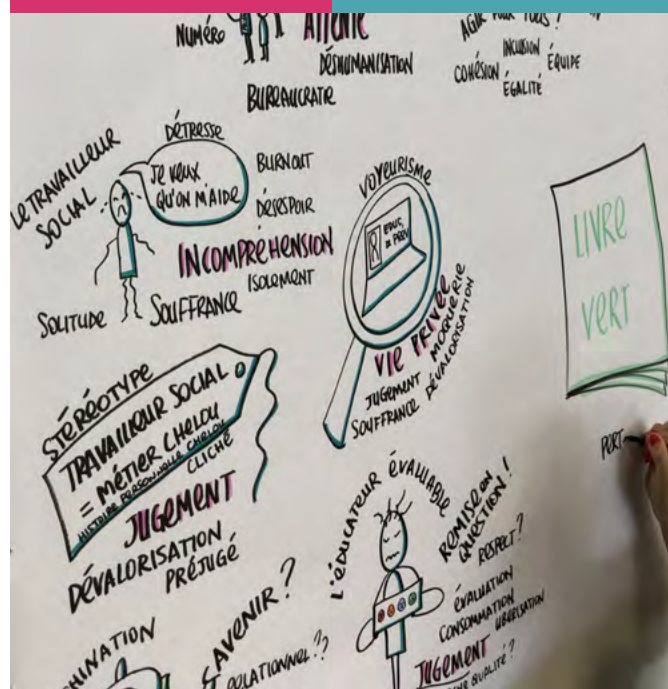 NUMÉRO
ATTENTE
DÉSHUMANISATION
BUREAUCRATIE
AGIR POUR TOUS ?
INCLUSION
COHÉSION
ÉQUIPE
ÉGALITÉ
LE TRAVAILLEUR
SOCIAL
DÉTRESSE
JE VEUX
QU'ON M'AIDE
BURNOUT
DÉSESPOIR
INCOMPRÉHENSION
ISOLEMENT
SOLITUDE
SOUFFRANCE
VOYEURISME
VIE PRIVÉE
MOQUERIE
JUGEMENT
DÉVALORISATION
SOUFFRANCE
LIVRE
VERT
PERT
STÉRÉOTYPE
TRAVAILLEUR SOCIAL
= MÉTIER CHELOU
HISTOIRE PERSONNELLE CHELOU
CLICHÉ
JUGEMENT
DÉVALORISATION
PRÉJUGÉ
L'ÉDUCATEUR ÉVALUABLE
REMISE EN
QUESTION !
RESPECT ?
ÉVALUATION
CONSOMMATION
UBERISATION
JUGEMENT
QUALITÉ ?
AVENIR ?
RELATIONNEL ??